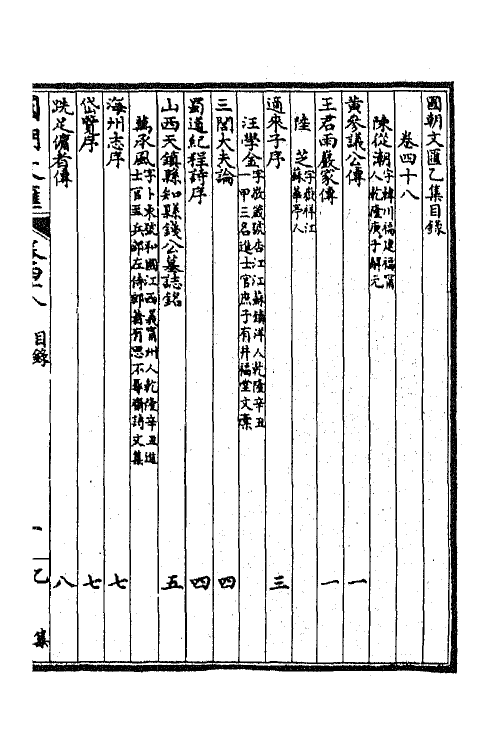 國朝文匯乙集目錄
卷四十八
陳從潮字韓川福建福甯人乾隆庚子解元
黃參議公傳 一
王君雨巖家傳 一
陸芝字敬祥江蘇華亭人
適來子序 三
汪學金字敬箴號杏江江蘇鎮洋人乾隆辛丑一甲三名進士官庶子有井福堂文稾
三閭大夫論 四
蜀道紀程詩序 四
山西天鎮縣知縣錢公墓誌銘 五
萬承風字卜東號和圃江西義甯州人乾隆辛丑進士官至兵部左侍郎著有思不辱齋詩文集
海州志序 七
岱覽序 七
跣足傭者傳 八
國朝文匯 卷四十八 目錄 一 乙集